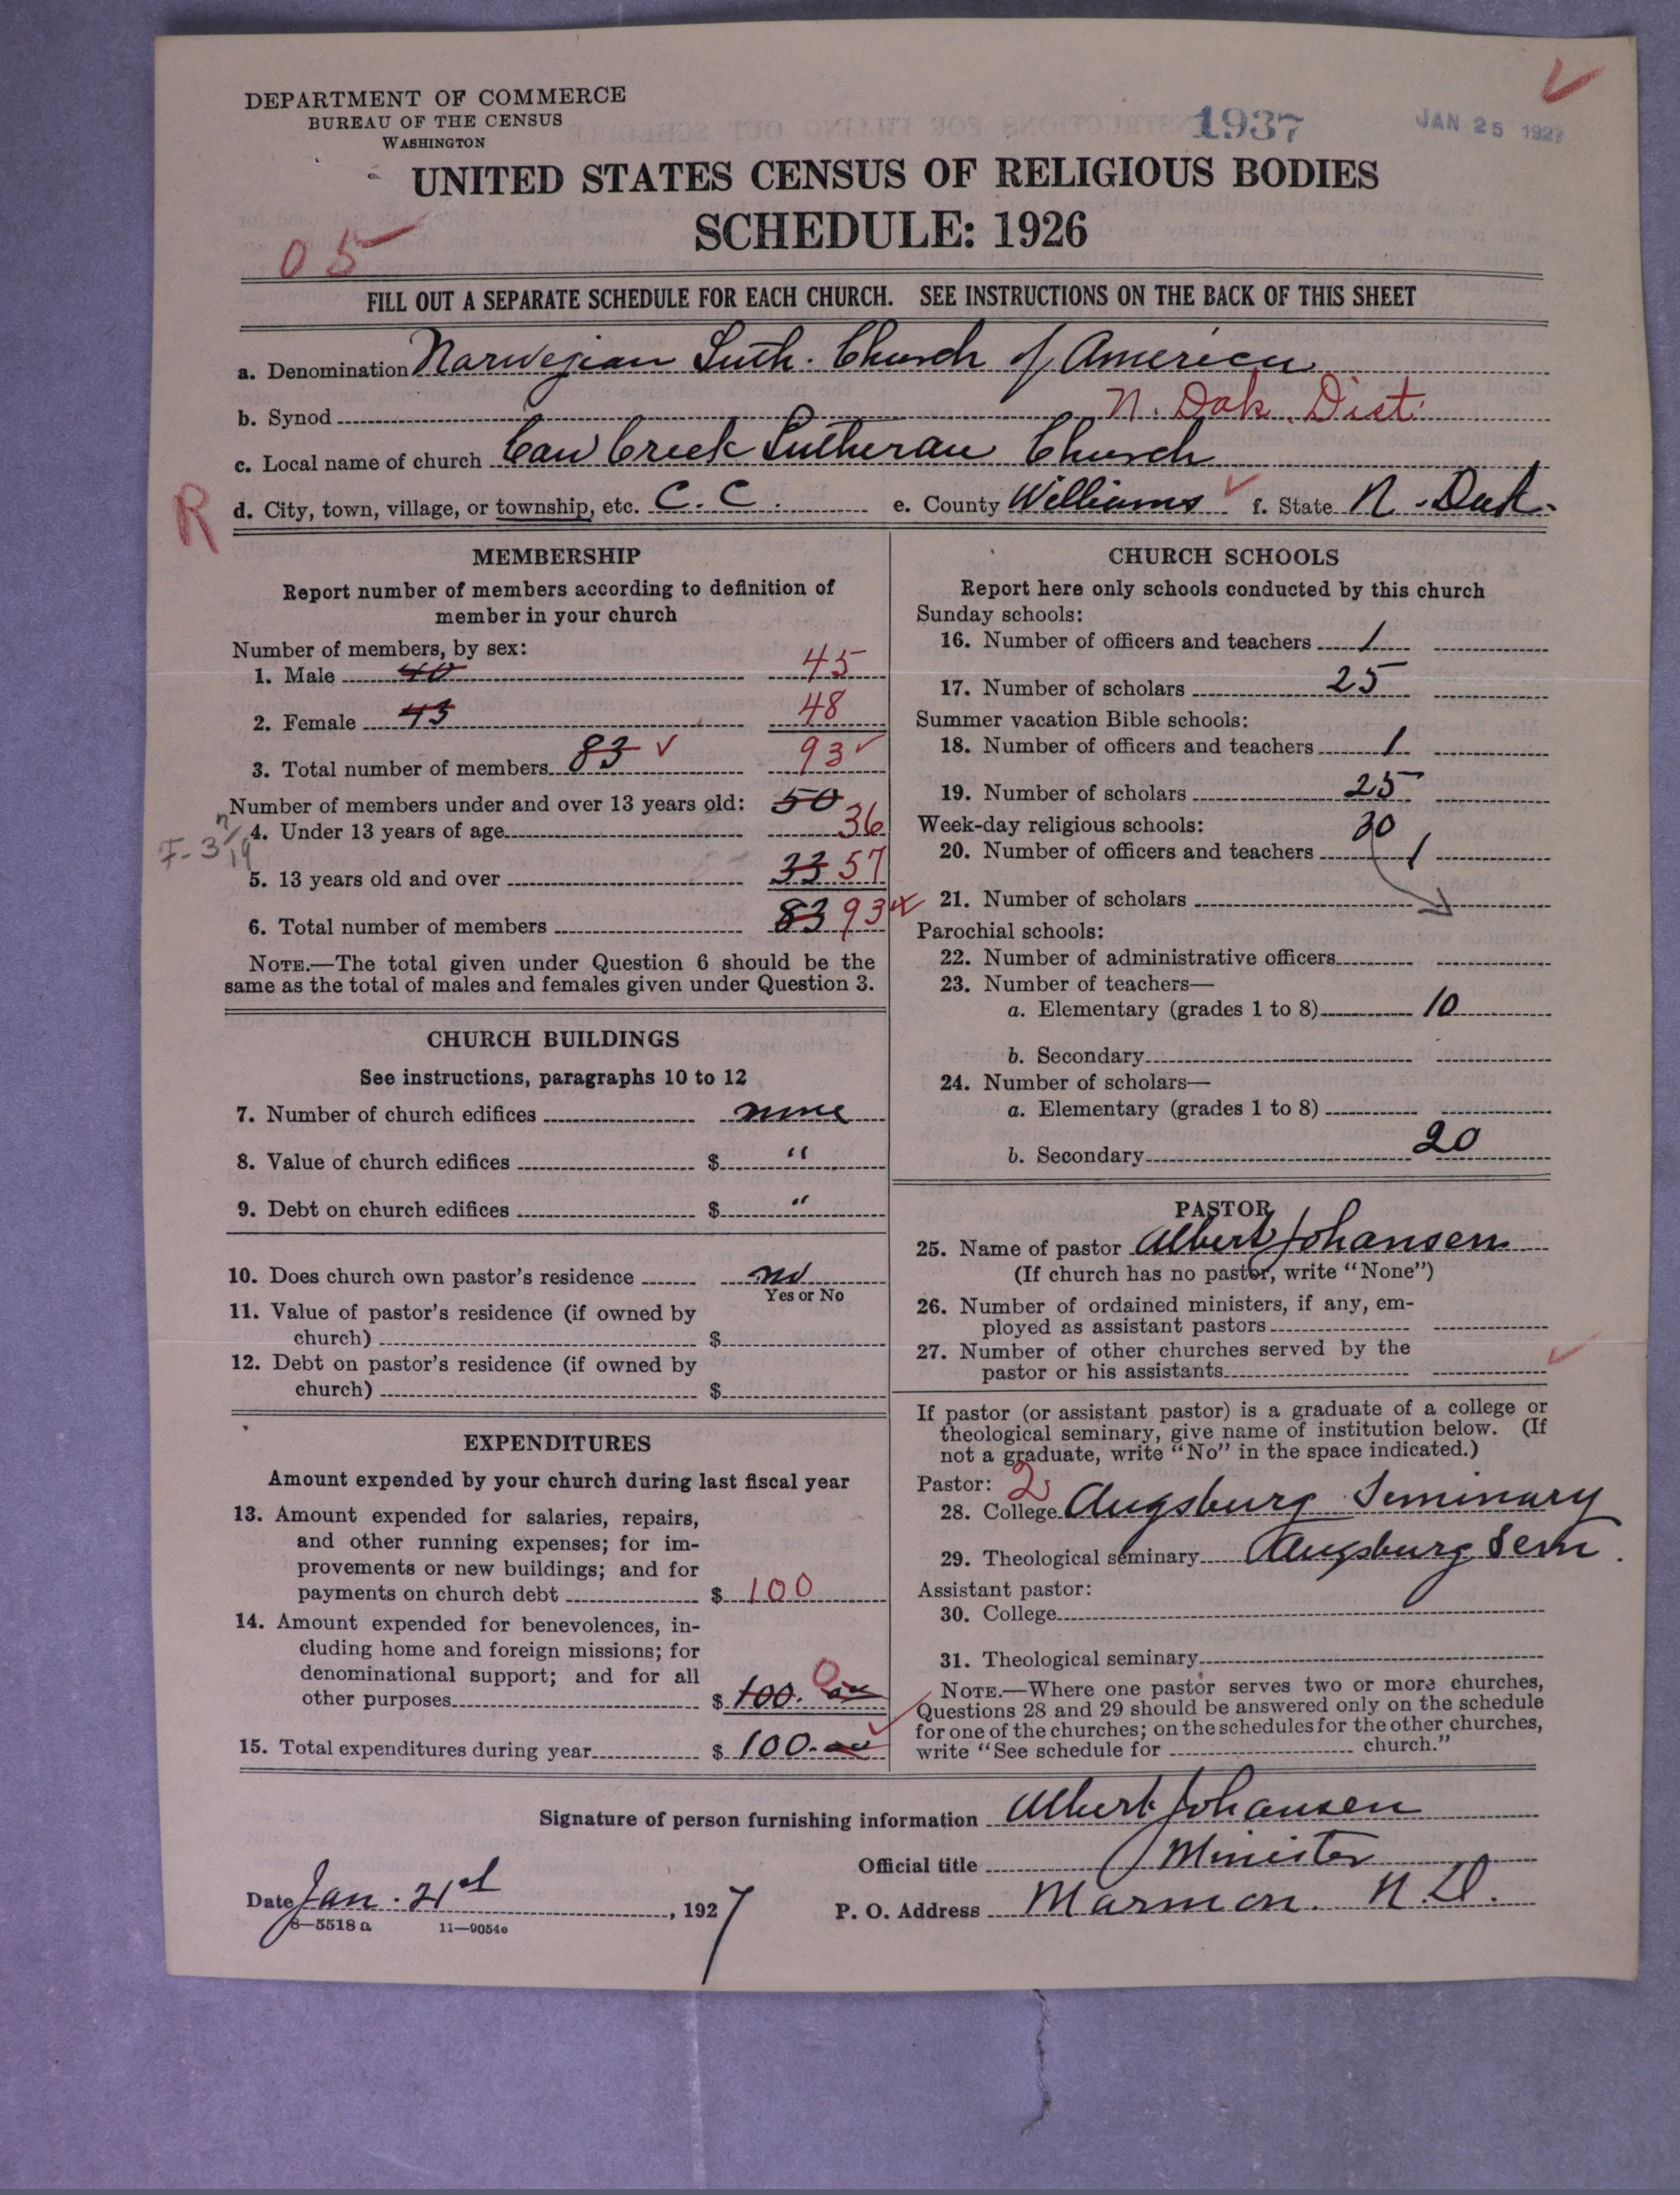 DEPARTMENT OF COMMERCE
BUREAU OF THE CENSUS
WASHINGTON
1937
JAN 25 1927
UNITED STATES CENSUS OF RELIGIOUS BODIES
SCHEDULE: 1926
05
FILL OUT A SEPARATE SCHEDULE FOR EACH CHURCH. SEE INSTRUCTIONS ON THE BACK OF THIS SHEET
a. Denomination Norwegian Luth. Church of America
b. Synod N. Dak. Dist.
c. Local name of church Cow Creek Lutheran Church
R
d. City, town, village, or township, etc. C. C. e. County Williams f. State N. Dak.
MEMBERSHIP
Report number of members according to definition of
member in your church
Number of members, by sex:
1. Male 40 45
2. Female 43 48
3. Total number of members 83 93
Number of members under and over 13 years old: 50
4. Under 13 years of age 36
5. 13 years old and over 33 57
6. Total number of members 83 93
NOTE.—The total given under Question 6 should be the
same as the total of males and females given under Question 3.
CHURCH BUILDINGS
See instructions, paragraphs 10 to 12
7. Number of church edifices none
8. Value of church edifices $ "
9. Debt on church edifices $ "
10. Does church own pastor's residence no
Yes or No
11. Value of pastor's residence (if owned by
church) $
12. Debt on pastor's residence (if owned by
church) $
EXPENDITURES
Amount expended by your church during last fiscal year
13. Amount expended for salaries, repairs,
and other running expenses; for im-
provements or new buildings; and for
payments on church debt $ 100
14. Amount expended for benevolences, in-
cluding home and foreign missions; for
denominational support; and for all
other purposes $ 100. 00 0
15. Total expenditures during year $ 100.00
CHURCH SCHOOLS
Report here only schools conducted by this church
Sunday schools:
16. Number of officers and teachers 1
17. Number of scholars 25
Summer vacation Bible schools:
18. Number of officers and teachers 1
19. Number of scholars 25
Week-day religious schools: 30
20. Number of officers and teachers 1
21. Number of scholars
Parochial schools:
22. Number of administrative officers
23. Number of teachers—
a. Elementary (grades 1 to 8) 10
b. Secondary
24. Number of scholars—
a. Elementary (grades 1 to 8)
b. Secondary 20
PASTOR
25. Name of pastor Albert Johansen
(If church has no pastor, write "None")
26. Number of ordained ministers, if any, em-
ployed as assistant pastors
27. Number of other churches served by the
pastor or his assistants
If pastor (or assistant pastor) is a graduate of a college or
theological seminary, give name of institution below. (If
not a graduate, write "No" in the space indicated.)
Pastor: 2
28. College Augsburg Seminary
29. Theological seminary Augsburg Sem.
Assistant pastor:
30. College
31. Theological seminary
NOTE.—Where one pastor serves two or more churches,
Questions 28 and 29 should be answered only on the schedule
for one of the churches; on the schedules for the other churches,
write "See schedule for church."
Signature of person furnishing information Albert Johansen
Official title Minister
Date Jan. 21st, 1927
P. O. Address Marmon. N.D.
8—5518 a 11—9054e